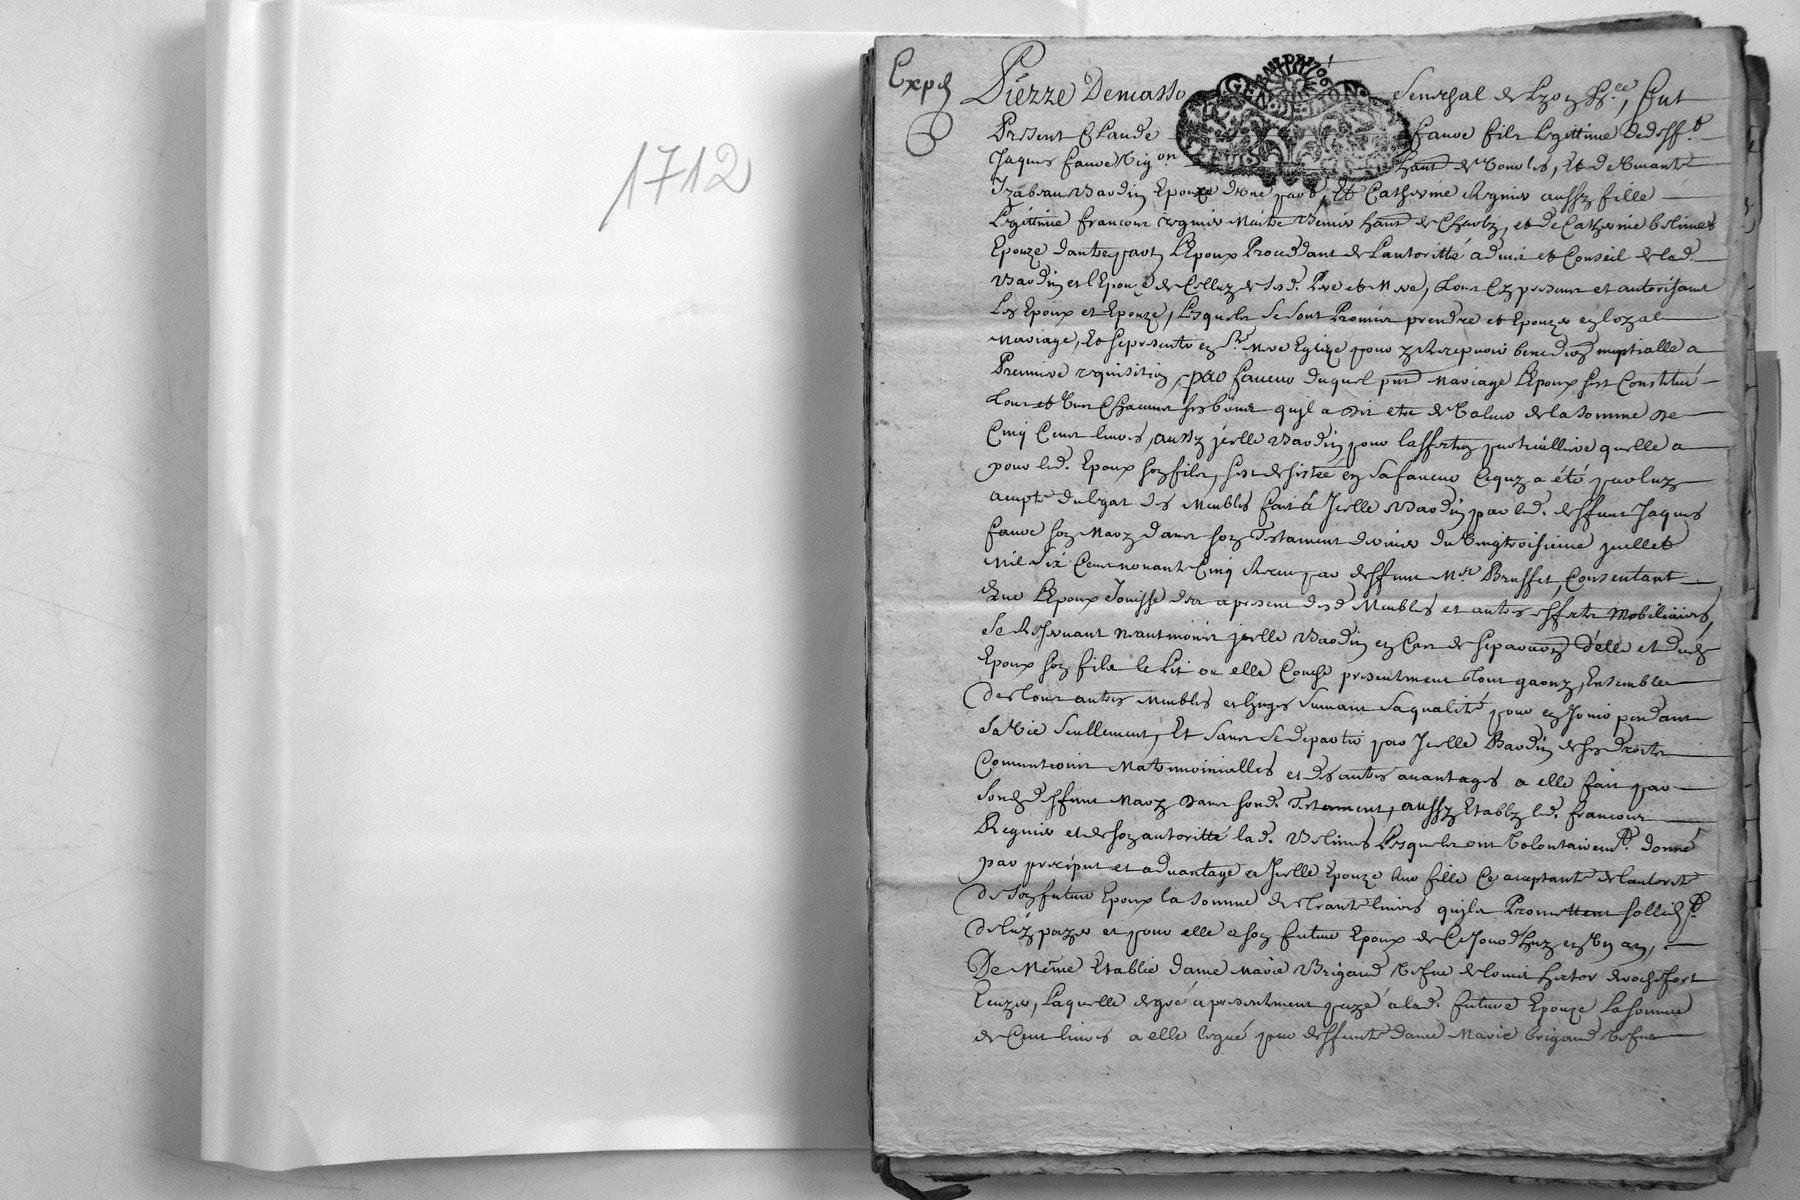 1712
Exp.d
Pierre Demasso Seneschal de Lyon &.ce, fut
Present Claude fauve fils legittime de deff.t
Jaques fauve Vig.on hant de Vourles, et de vivante
Izabeau Bardin Epouze d'une part, Et Catherine Regnier aussy fille
Legittime francois regnier Maitre hant de Charly, et de Catherine
Epouze d'autre part, L'Epoux Procedant de L'autoritté advis et Conseil de lad.
Bardin et l'Epouze de Celluy de sesd. Pere et Mere, tous Cy presens et autorisans
Les Epoux et Epouze, Lesquels se sont Promis prendre et Epouzer en loyal
Mariage, Et se presenter en S.te Mere Eglize pour y Recepvoir benediction nuptialle a
Premiere requisition, par faveur duquel pnt Mariage L'Epoux s'est Constitué
tous et Uns Chacuns ses biens qu'jl a dit etre de Valeur de la somme de
Cinq Cens livres, aussy jcelle Bardin pour l'affection particulliere quelle a
pour led. Epoux son fils, s'est desistée en sa faveur Ce quy a été par luy
accepté du legat des Meubles fait a Jcelle Bardin par led. deffunt Jaques
fauve son Mary dans son Testament dernier du Vingtroisieme juillet
Mil Six Cens nonante Cinq Receu par deffunt M.e Brusset, Consentant
que L'Epoux Jouisse des a present desd. Meubles et autres effects Mobiliaires,
Se Reservant neantmoins jcelle Bardin en Cas de separation d'elle et dud.
Epoux son fils le Lit ou elle Couche presentment tout garny, Ensemble
de tous autres Meubles et linges suivant sa qualité pour en Jouir pendant
Sa Vie Seullement, Et Sans Se departir par Jcelle Bardin de ses droits
Conventions Matrimonialles et des autres avantages a elle fait par
Sond. deffunt Mary dans sond. Testament, aussy Etably led. francois
Regnier et de son autoritté lad. Lesquels ont Volontairem.t donné
par preciput et advantage a Jcelle Epouze leur fille Ce acceptante de l'autorité
de son futur Epoux la somme de trante livres qu'jls Promettent sollid.t
de luy payer et pour elle a son futur Epoux de Ce Jourd'huy en Un an,
De Méme Etablie dame Marie Brigaud Vefve de Louis hector de rochefort
Ecuyer, Laquelle de gré a presentment payé a lad. future Epouze La somme
de Cent livres a elle legué par deffunte dame Marie brigaud Vefve